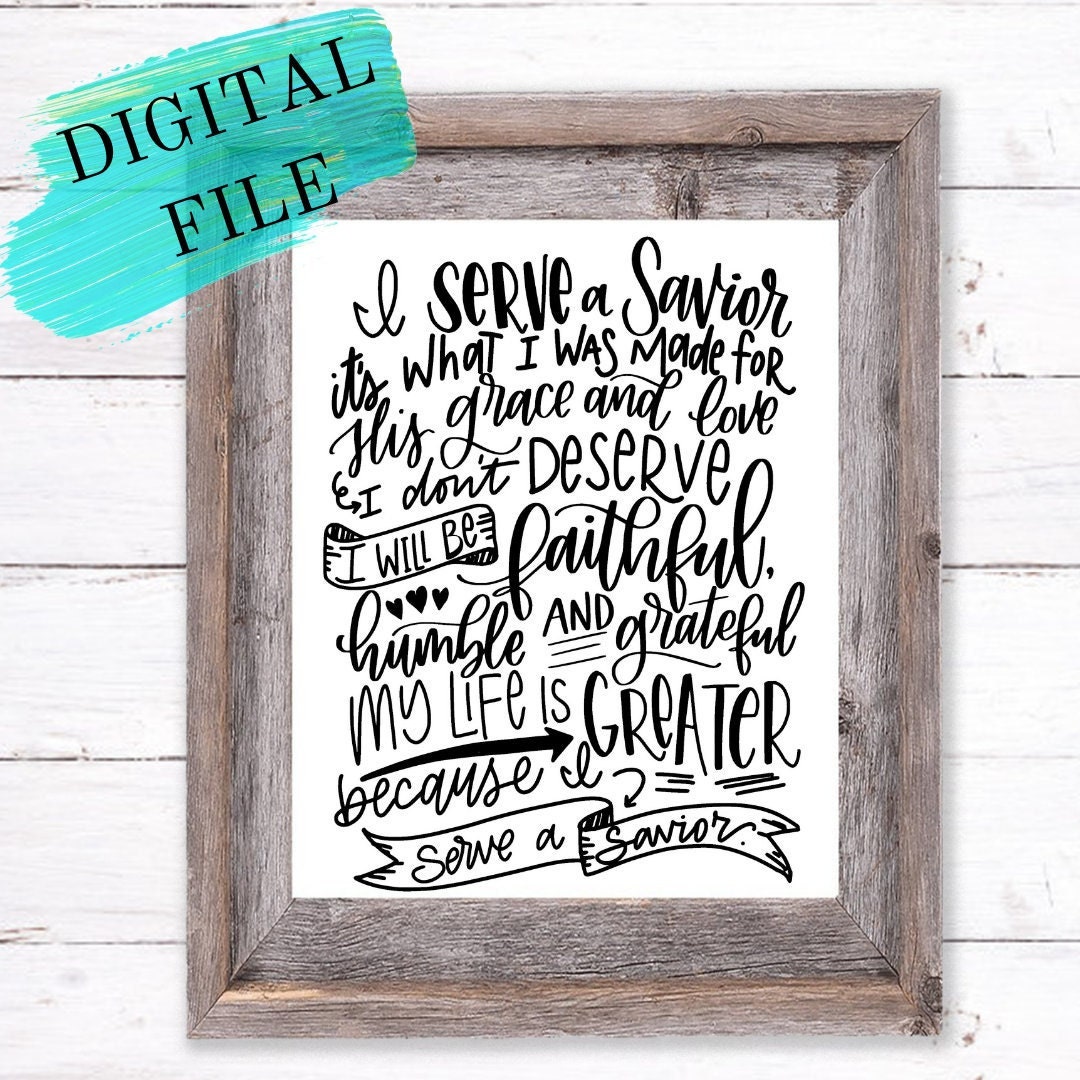 DIGITAL
FILE
I SERVE a Savior
it's WHAT I WAS MADE FOR
His grace and love
I don't DESERVE
I WILL BE faithful,
humble AND grateful
MY LIFE IS GREATER
because I
serve a savior.